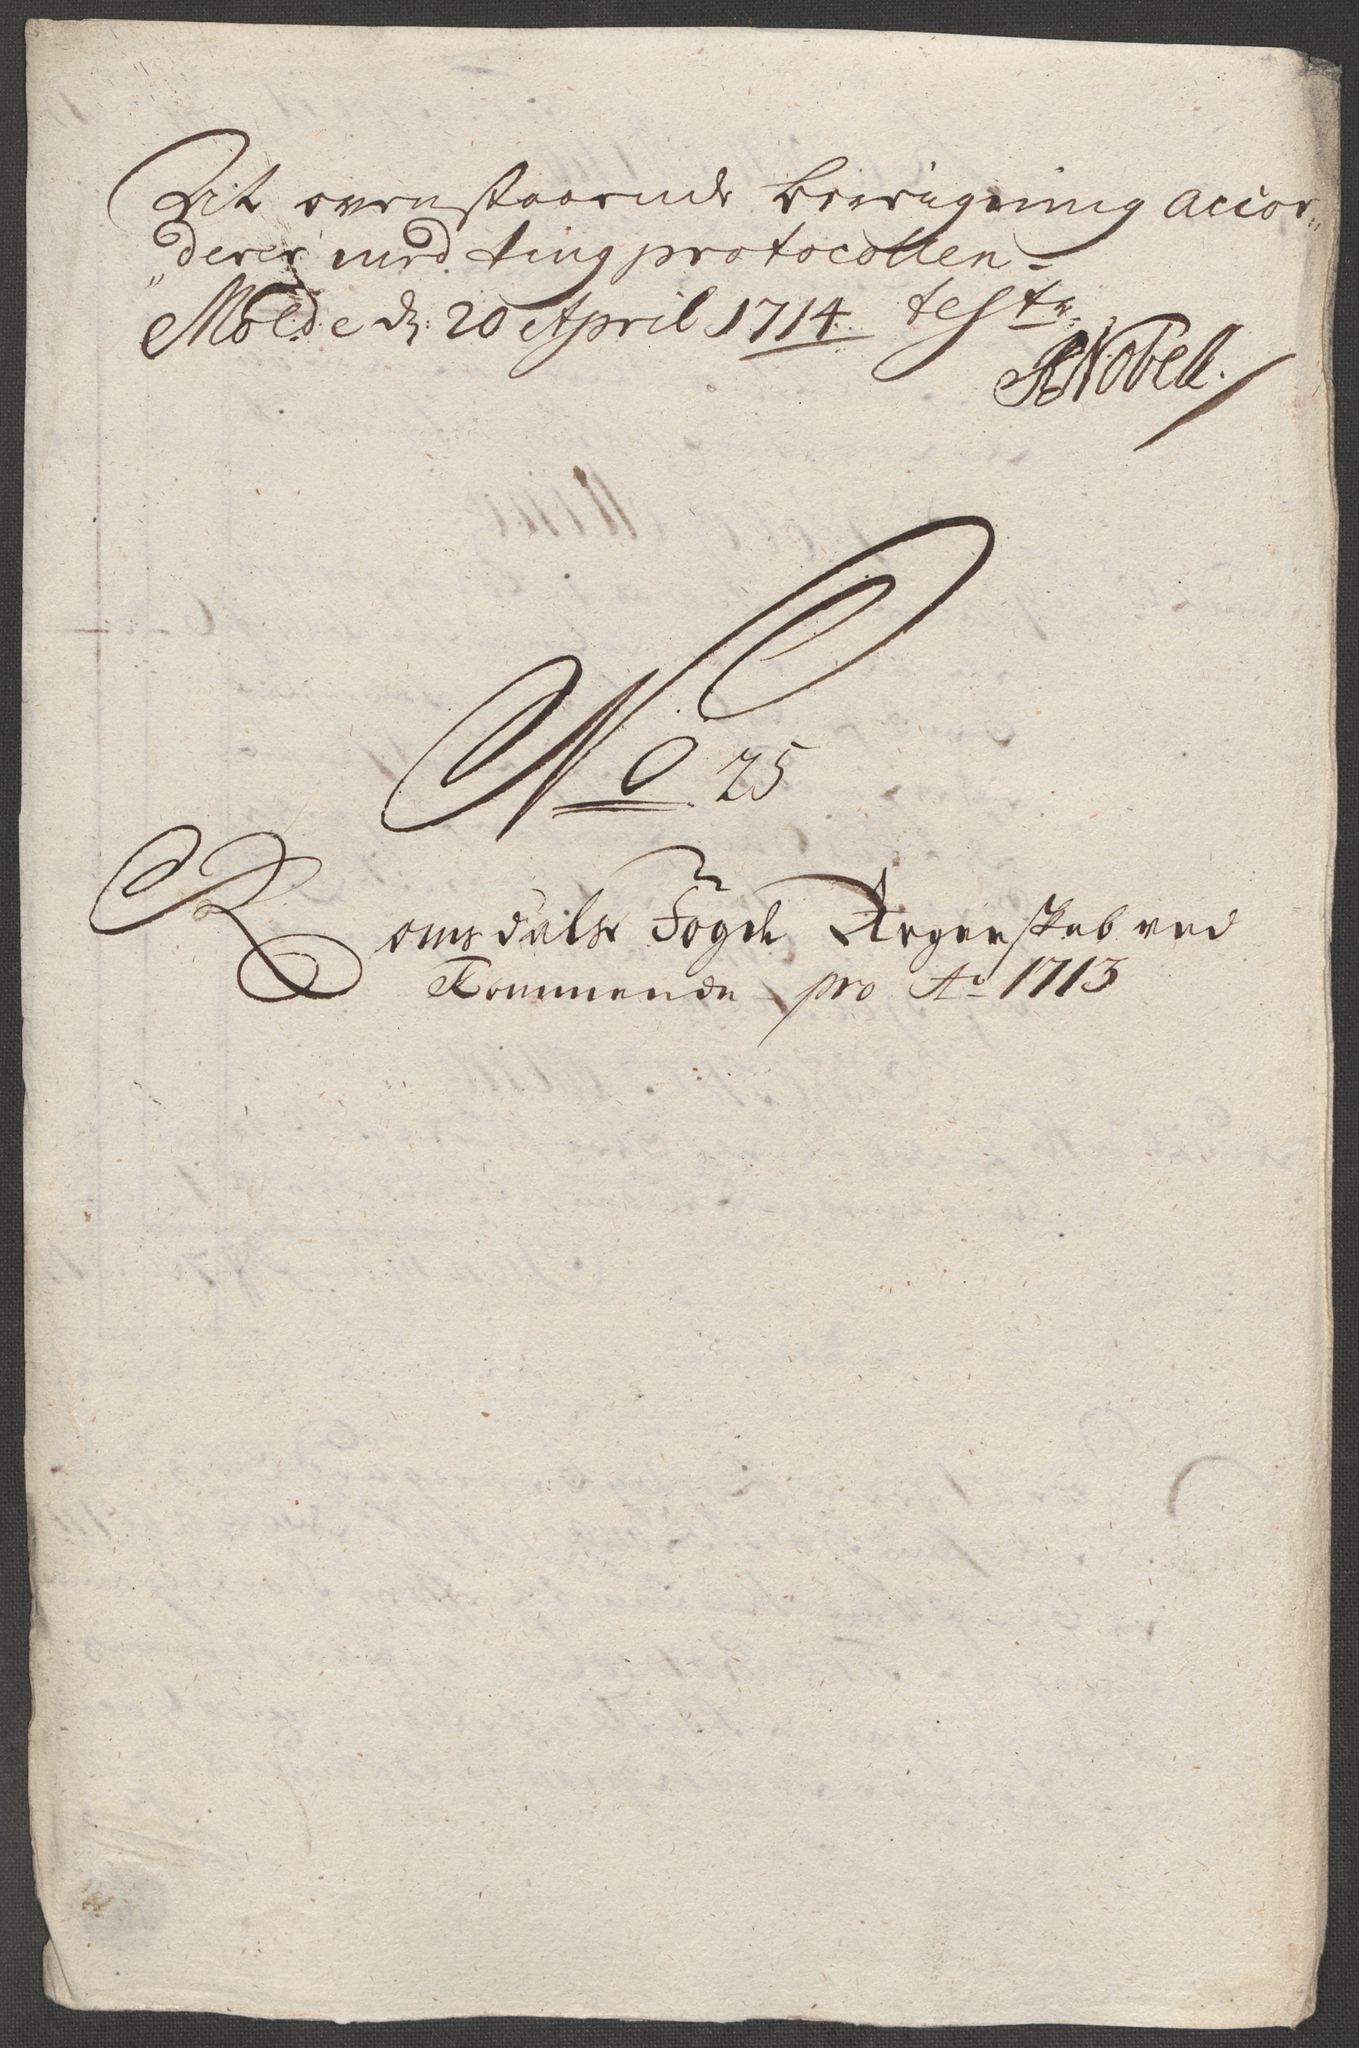 At ovenstaaende beregning accor„
„derer med ting protocollen.
Molde d: 20 April 1714. test:
Nobell.
No 25
Romsdals Fogde Regenskab ved
Kommende pro Ao 1713